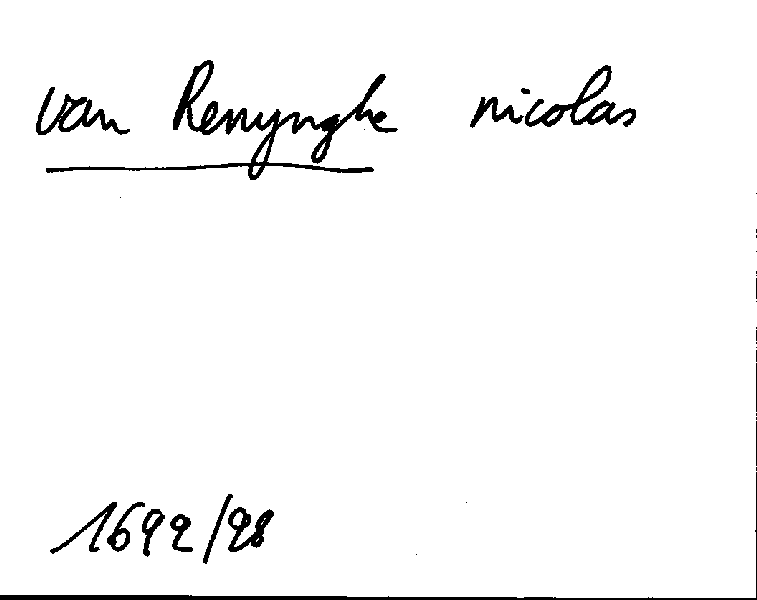 van Renynghe nicolas
1692/98